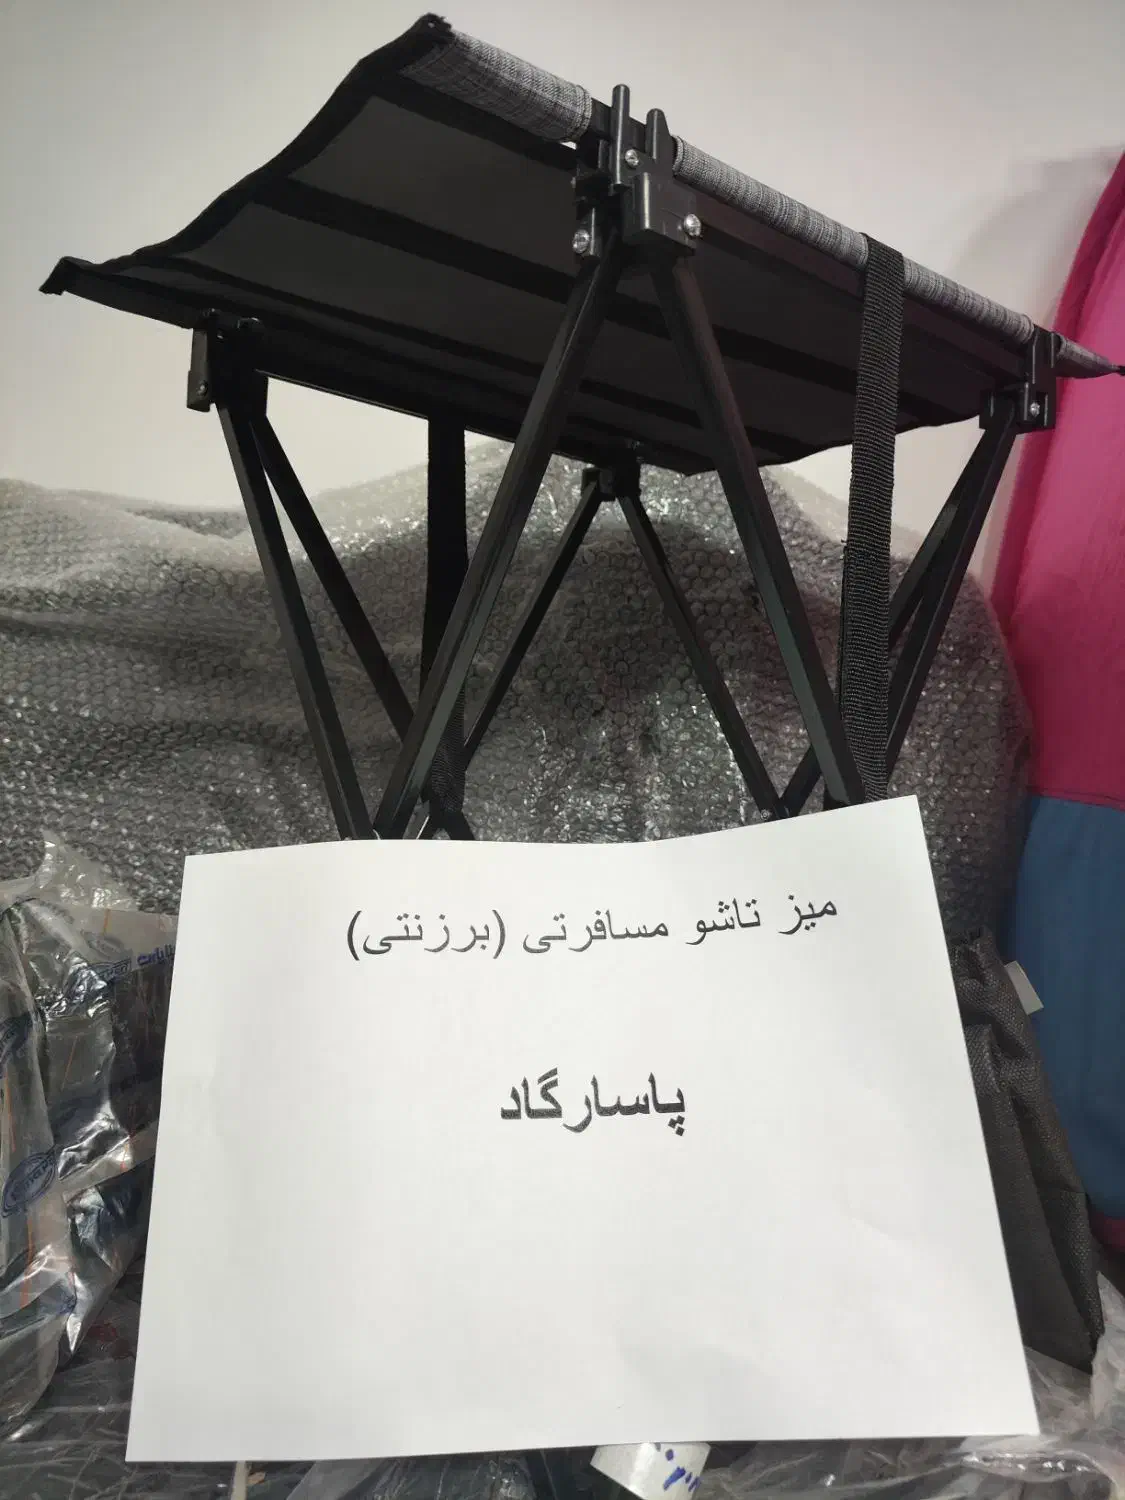 میز تاشو مسافرتی (برزنتی)
پاسارگاد